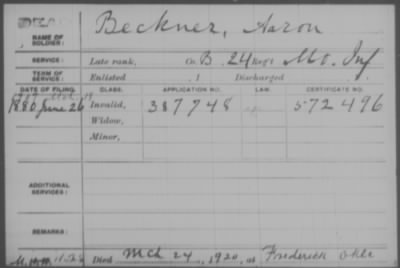 NAME OF SOLDIER: Beckner, Aaron
SERVICE: Late rank, Co. B, 24 Reg't Mo. Inf
TERM OF SERVICE: Enlisted , 1 Discharged , 1
DATE OF FILING. CLASS. APPLICATION NO. LAW. CERTIFICATE NO.
1880 June 26 Invalid, 387748 572496
Widow,
Minor,
ADDITIONAL SERVICES:
REMARKS:
Died Mch 24, 1920, at Frederick Okla